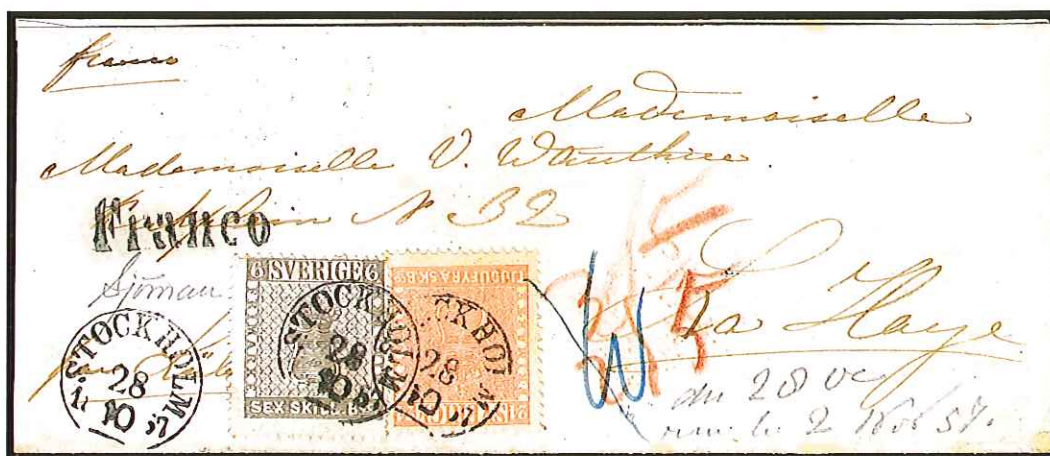 franco
Mademoiselle
Mademoiselle V. Wauthier
N 32
Franco
La Haye
6 SVERIGE 6
SEX SKILL. BCO
TJUGUFYRA SK. B
STOCKHOLM
28
10
57
STOCKHOLM
28
10
57
STOCKHOLM
28
10
57
du 28 Oc
2 Nov 57.